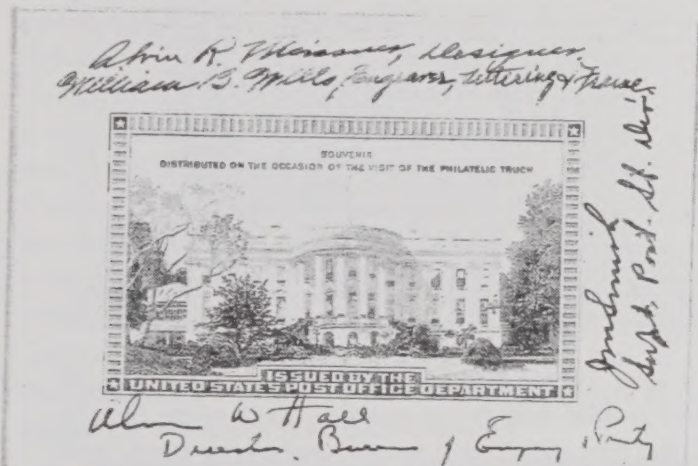 Alvin R. Meissner, Designer
William B. Wells, Engraver, Lettering & Frame
SOUVENIR
DISTRIBUTED ON THE OCCASION OF THE VISIT OF THE PHILATELIC TRUCK
ISSUED BY THE
UNITED STATES POST OFFICE DEPARTMENT
Supt. Post. St. Div.
Alvin W Hall
Director, Bureau of Engraving & Printing